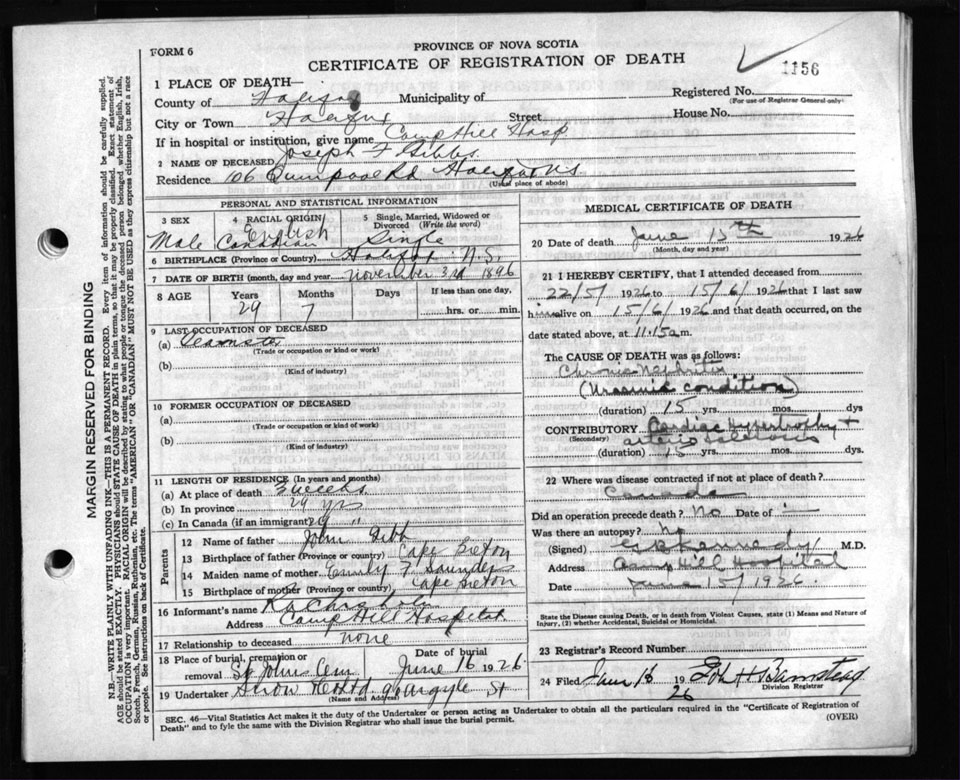 FORM 6
PROVINCE OF NOVA SCOTIA
CERTIFICATE OF REGISTRATION OF DEATH
1156
1 PLACE OF DEATH—
County of Halifax Municipality of
Registered No.
(For use of Registrar General only)
City or Town Halifax Street House No.
If in hospital or institution, give name Camp Hill Hosp
2 NAME OF DECEASED Joseph F Gibbs
Residence 106 Quinpool Rd Halifax N.S.
(Usual place of abode)
PERSONAL AND STATISTICAL INFORMATION
3 SEX
Male
4 RACIAL ORIGIN
English
Canadian
5 Single, Married, Widowed or Divorced (Write the word)
Single
6 BIRTHPLACE (Province or Country) Halifax N.S.
7 DATE OF BIRTH (month, day and year) November 3rd 1896
8 AGE Years Months Days If less than one day,
29 7 hrs. or min.
9 LAST OCCUPATION OF DECEASED
(a) Teamster
(Trade or occupation or kind or work)
(b)
(Kind of industry)
10 FORMER OCCUPATION OF DECEASED
(a)
(Trade or occupation or kind of work)
(b)
(Kind of industry)
11 LENGTH OF RESIDENCE (In years and months)
(a) At place of death 3 weeks
(b) In province 29 yrs
(c) In Canada (if an immigrant) 29 "
Parents
12 Name of father John Gibb
13 Birthplace of father (Province or country) Cape Breton
14 Maiden name of mother Emily F Saunders
15 Birthplace of mother (Province or country) Cape Breton
16 Informant's name
Address Camp Hill Hospital
17 Relationship to deceased none
18 Place of burial, cremation or removal St Johns Cem
Date of burial June 16 1926
19 Undertaker Snow Argyle St
(Name and Address)
MEDICAL CERTIFICATE OF DEATH
20 Date of death June 15th 1926
(Month, day and year)
21 I HEREBY CERTIFY, that I attended deceased from
22/5/ 1926 to 15/6/ 1926 that I last saw
him alive on 15/6/ 1926 and that death occurred, on the
date stated above, at 11.15 a m.
The CAUSE OF DEATH was as follows:
Chronic Nephritis
(Uraemic condition)
(duration) 15 yrs. mos. dys
CONTRIBUTORY Cardiac Hypertrophy +
(Secondary) arterio Sclerosis
(duration) 15 yrs. mos. dys.
22 Where was disease contracted if not at place of death?
Canada
Did an operation precede death? No Date of —
Was there an autopsy? No
(Signed) Kennedy M.D.
Address Camp Hill Hospital
Date June 15/ 1926.
State the Disease causing Death, or in death from Violent Causes, state (1) Means and Nature of
Injury, (2) whether Accidental, Suicidal or Homicidal.
23 Registrar's Record Number
24 Filed June 16 1926 John H Barnstead
Division Registrar
SEC. 46—Vital Statistics Act makes it the duty of the Undertaker or person acting as Undertaker to obtain all the particulars required in the "Certificate of Registration of
Death" and to fyle the same with the Division Registrar who shall issue the burial permit.
(OVER)
MARGIN RESERVED FOR BINDING
N.B.—WRITE PLAINLY WITH UNFADING INK—THIS IS A PERMANENT RECORD. Every item of information should be carefully supplied.
AGE should be stated EXACTLY. PHYSICIANS should STATE CAUSE OF DEATH in plain terms, so that it may be properly classified. Exact statement of
OCCUPATION is very important. RACIAL ORIGIN will be described by stating to what people or tongue the deceased person belonged whether English, Irish,
Scotch, French, German, Russian, Ruthenian, etc. The terms "AMERICAN" OR "CANADIAN" MUST NOT BE USED as they express citizenship but not a race
or people. See instructions on back of Certificate.